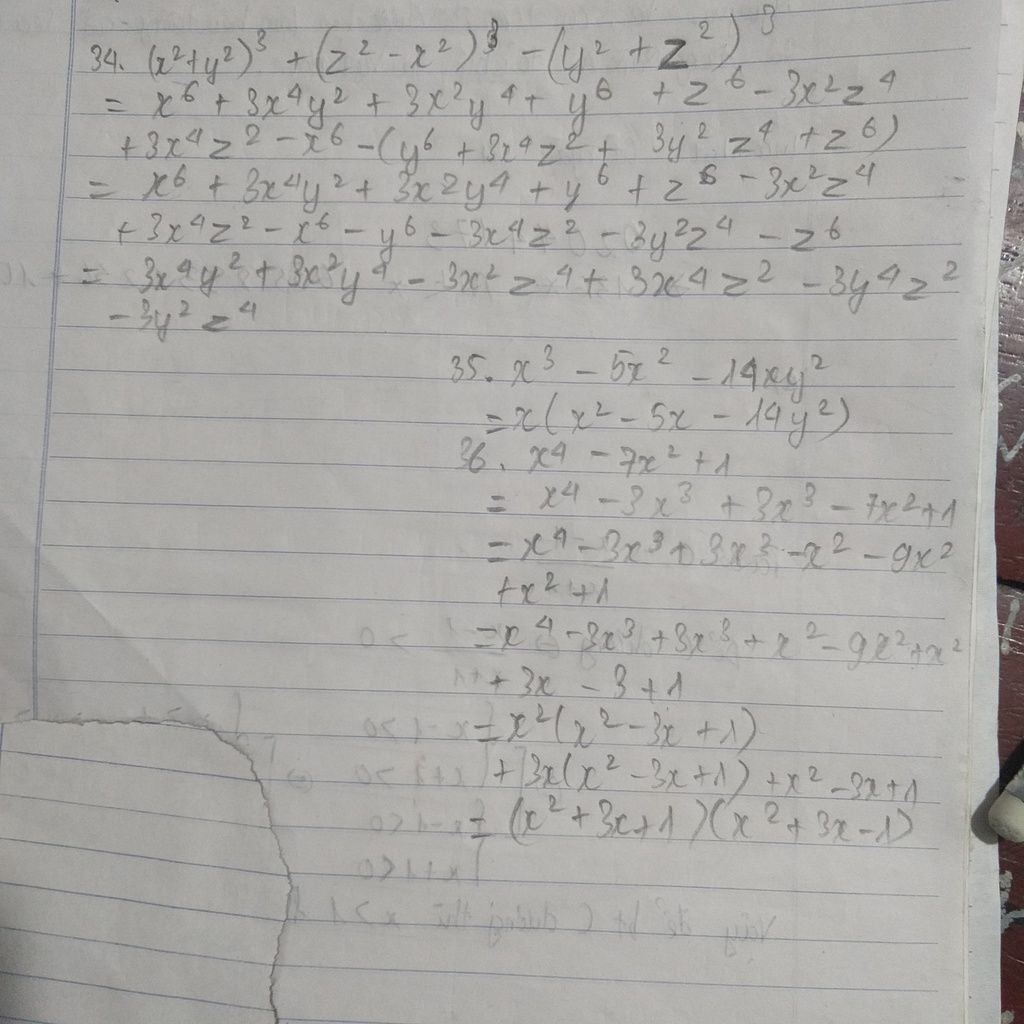 34. (x²+y²)³ + (z² - x²)³ - (y² + z²)³
= x⁶ + 3x⁴y² + 3x²y⁴ + y⁶ + z⁶ - 3x²z⁴
+3x⁴z² - x⁶ - (y⁶ + 3x⁴z² + 3y²z⁴ + z⁶)
= x⁶ + 3x⁴y² + 3x²y⁴ + y⁶ + z⁶ - 3x²z⁴
+3x⁴z² - x⁶ - y⁶ - 3x⁴z² - 3y²z⁴ - z⁶
= 3x⁴y² + 3x²y⁴ - 3x²z⁴ + 3x⁴z² - 3y⁴z²
- 3y²z⁴
35. x³ - 5x² - 14xy²
= x(x² - 5x - 14y²)
36. x⁴ - 7x² + 1
= x⁴ - 3x³ + 3x³ - 7x² + 1
= x⁴ - 3x³ + 3x³ - x² - 9x²
+x² + 1
= x⁴ - 3x³ + 3x³ + x² - 9x² + x²
+ 3x - 3 + 1
= x²(x² - 3x + 1)
+ 3x(x² - 3x + 1) + x² - 3x + 1
= (x² + 3x + 1)(x² + 3x - 1)